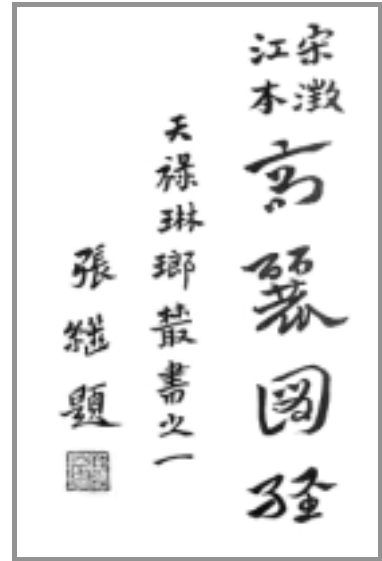 宋澂
江本
高麗圖经
天祿琳瑯叢書之一
張继題